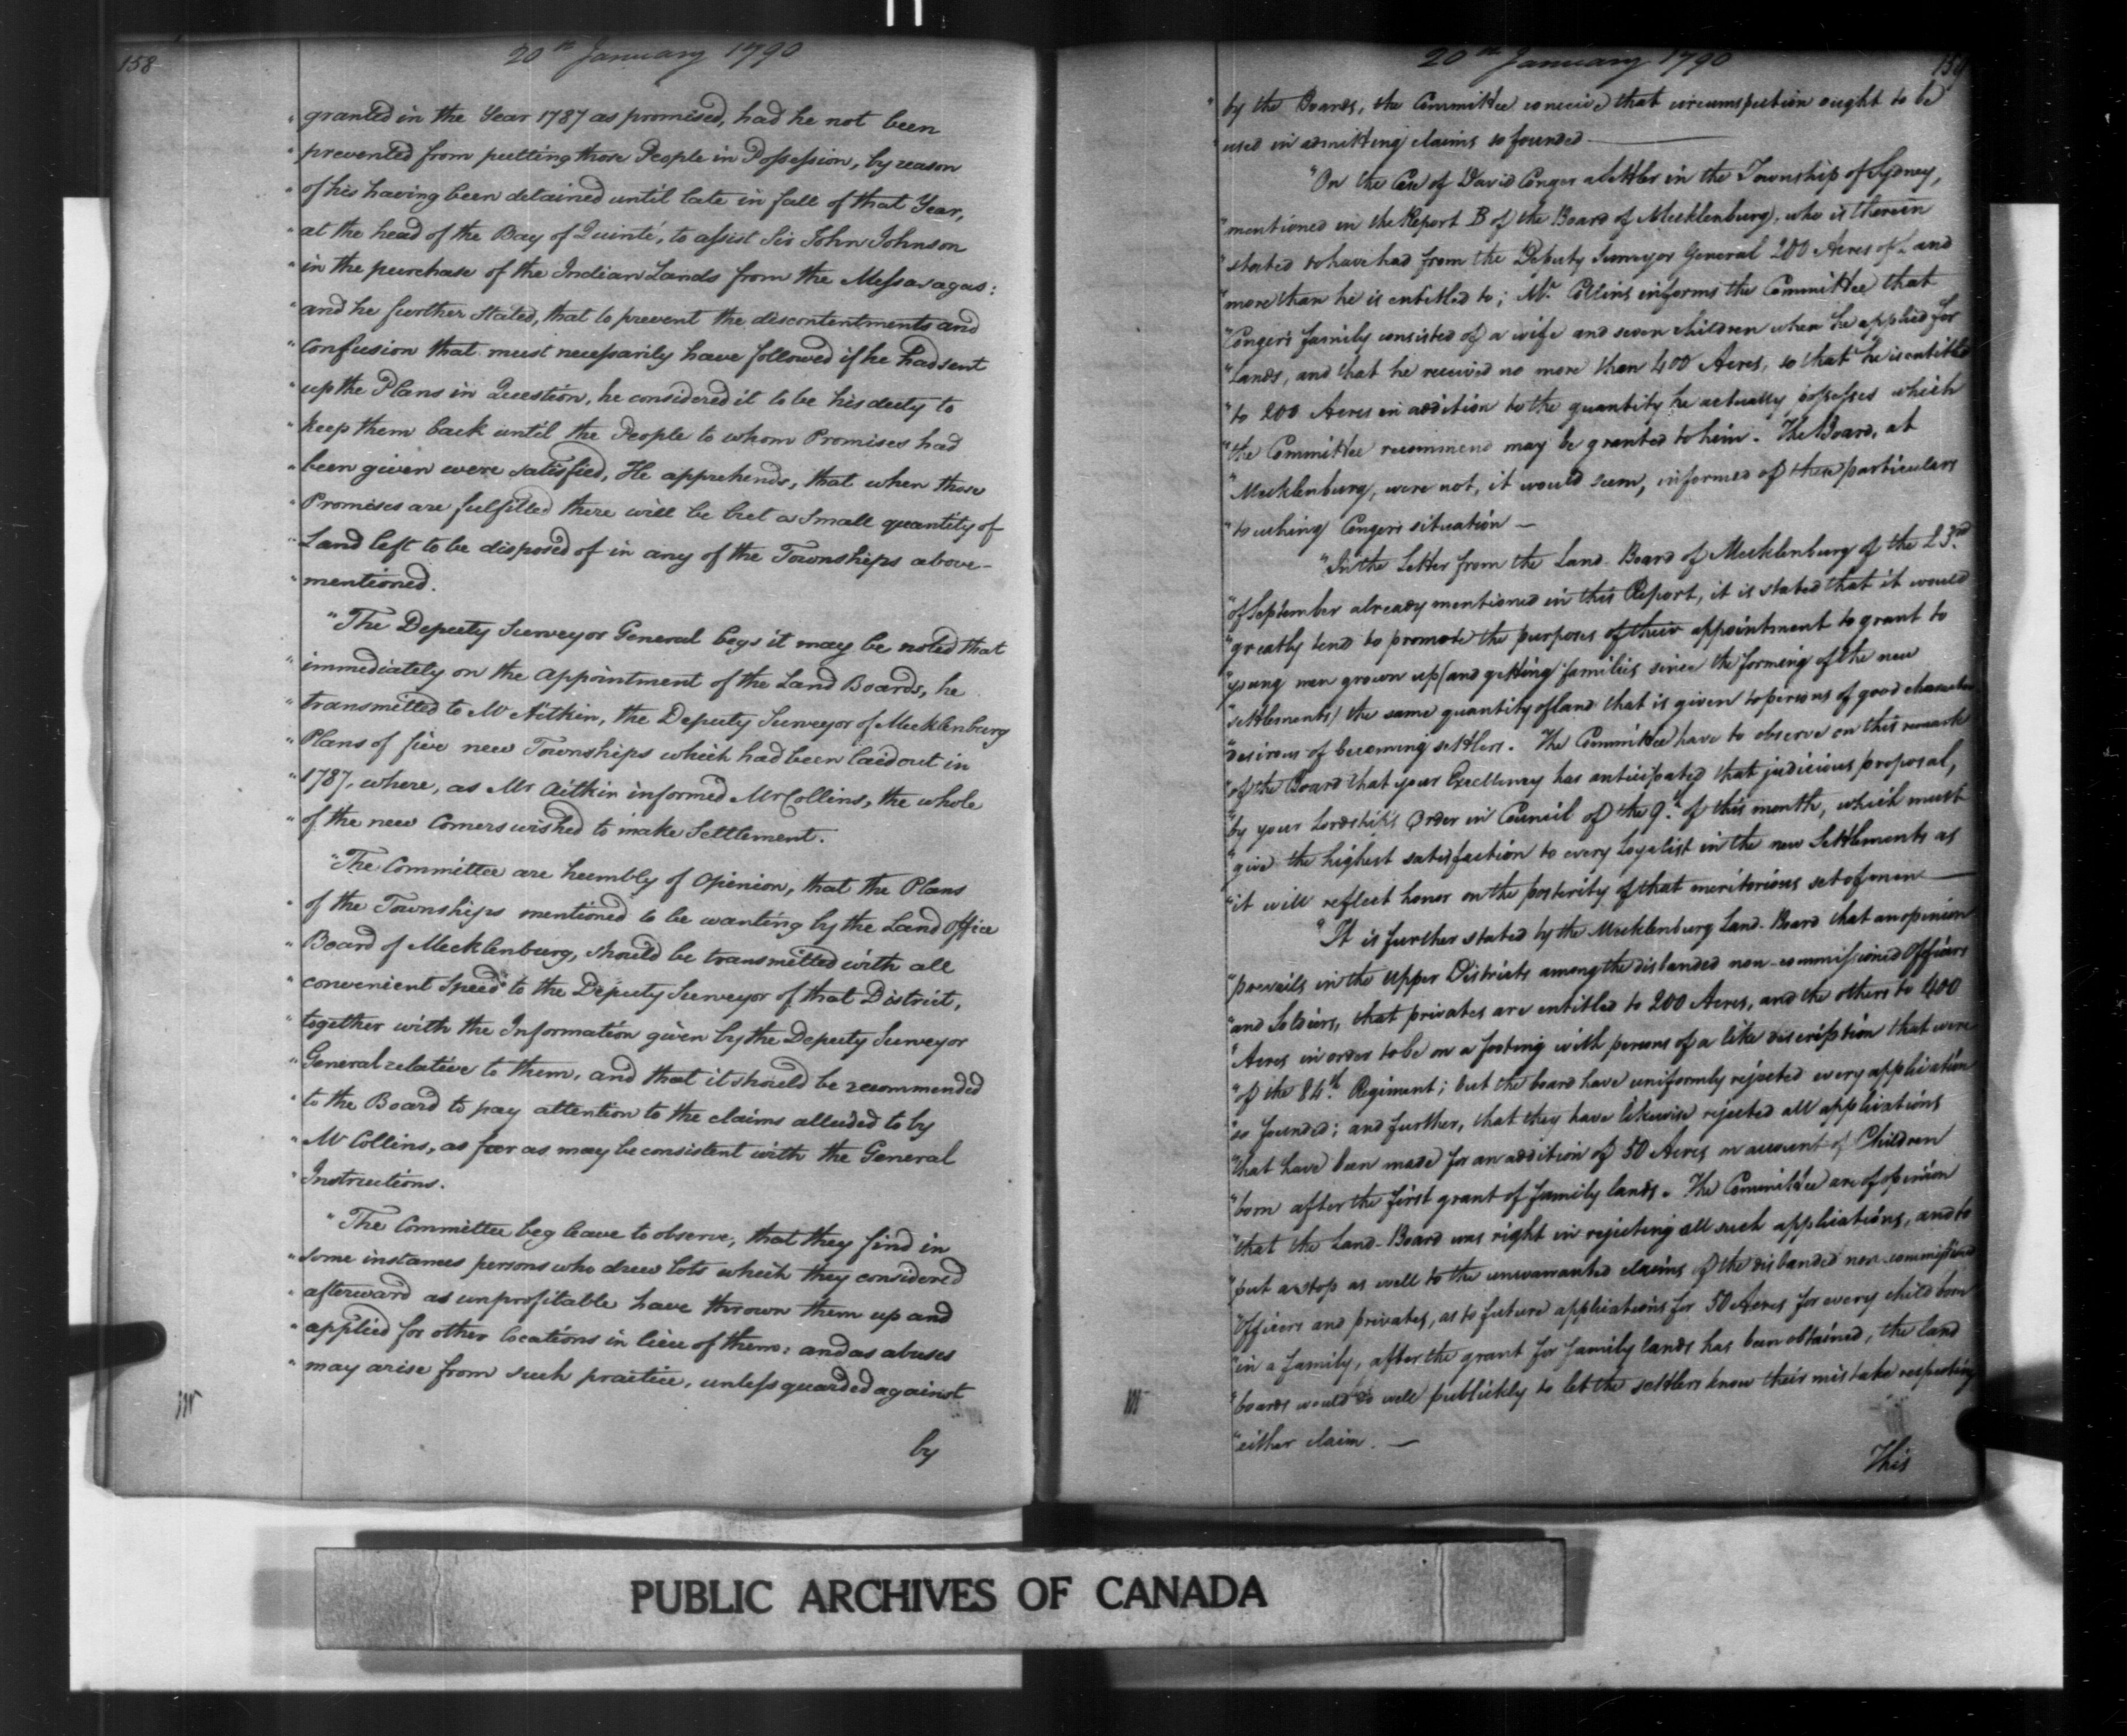 158
20th January 1790
" granted in the Year 1787 as promised, had he not been
" prevented from putting those People in Possession, by reason
" of his having been detained until late in fall of that Year,
" at the head of the Bay of Quinté, to assist Sir John Johnson
" in the purchase of the Indian Lands from the Messasagas:
" and he further Stated, that to prevent the discontentments and
" Confusion that must necessarily have followed if he had sent
" up the Plans in Question, he considered it to be his duty to
" keep them back until the People to whom Promises had
" been given were satisfied, He apprehends, that when those
" Promises are fulfilled there will be but a Small quantity of
" Land left to be disposed of in any of the Townships above-
" mentioned.
" The Deputy Surveyor General begs it may be noted that
" immediately on the Appointment of the Land Boards, he
" transmitted to Mr Aitkin, the Deputy Surveyor of Mecklenburg
" Plans of five new Townships which had been laid out in
" 1787, where, as Mr Aitkin informed Mr Collins, the whole
" of the new Comers wished to make Settlement.
" The Committee are humbly of Opinion, that the Plans
" of the Townships mentioned to be wanting by the Land Office
" Board of Mecklenburg, should be transmitted with all
" convenient Speed to the Deputy Surveyor of that District,
" together with the Information given by the Deputy Surveyor
" General relative to them, and that it should be recommended
" to the Board to pay attention to the claims alluded to by
" Mr Collins, as far as may be consistent with the General
" Instructions.
" The Committee beg leave to observe, that they find in
" some instances persons who drew lots which they considered
" afterward as unprofitable have thrown them up and
" applied for other locations in lieu of them: and as abuses
" may arise from such practice, unless guarded against
by
20th January 1790
" by the Boards, the Committee conceive that circumspection ought to be
" used in admitting claims so founded —
" On the Case of David Conger a Settler in the Township of Sydney,
" mentioned in the Report B of the Board of Mecklenburg, who is therein
" stated to have had from the Deputy Surveyor General 200 Acres of Land
" more than he is entitled to; Mr. Collins informs the Committee that
" Conger's family consisted of a wife and seven children when he applied for
" Lands, and that he received no more than 400 Acres, so that he is entitled
" to 200 Acres in addition to the quantity he actually possesses which
" the Committee recommend may be granted to him. The Board, at
" Mecklenburg, were not, it would seem, informed of these particulars
" touching Conger's situation —
" In the Letter from the Land Board of Mecklenburg of the 23rd
" of September already mentioned in this Report, it is stated that it would
" greatly tend to promote the purposes of their appointment to grant to
" young men grown up (and getting families since the forming of the new
" settlements) the same quantity of land that is given to persons of good character
" desirous of becoming settlers. The Committee have to observe on this remark
" of the Board that your Excellency has anticipated that judicious proposal,
" by your Lordship's Order in Council of the 9th of this month, which must
" give the highest satisfaction to every Loyalist in the new Settlements as
" it will reflect honor on the posterity of that meritorious set of men —
" It is further stated by the Mecklenburg Land-Board that an opinion
" prevails in the Upper Districts among the disbanded non-commissioned Officers
" and Soldiers, that privates are entitled to 200 Acres, and the others to 400
" Acres in order to be on a footing with persons of a like description that were
" of the 84th Regiment; but the board have uniformly rejected every application
" so founded; and further, that they have likewise rejected all applications
" that have been made for an addition of 50 Acres on account of Children
" born after the first grant of family lands. The Committee are of opinion
" that the Land-Board was right in rejecting all such applications, and to
" put a stop as well to the unwarranted claims of the disbanded non-commissioned
" Officers and privates, as to future applications for 50 Acres for every child born
" in a family, after the grant for family lands has been obtained, the land
" boards would do well publickly to let the settlers know their mistake respecting
" either claim. —
This
PUBLIC ARCHIVES OF CANADA